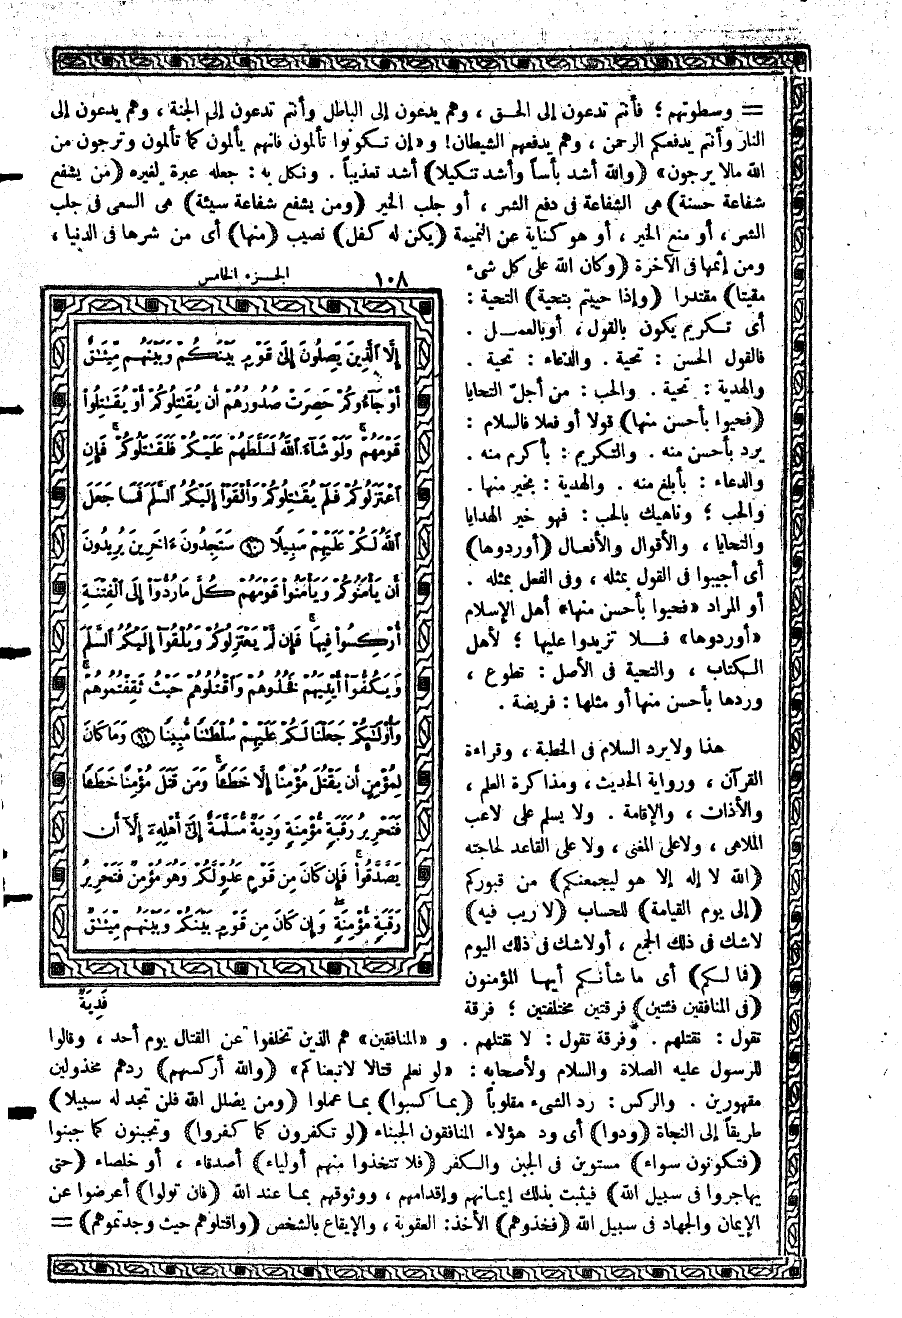 = وسطوتهم ؛ فأنتم تدعون إلى الحق ، وهم يدعون إلى الباطل وأنتم تدعون إلى الجنة ، وهم يدعون إلى
النار وأنتم يدفعكم الرحمن ، وهم يدفعهم الشيطان! و «إن تكونوا تألمون فانهم يألمون كما تألمون وترجون من
الله مالا يرجون» (والله أشد بأساً وأشد تنكيلا) أشد تعذيباً . ونكل به : جعله عبرة لغيره (من يشفع
شفاعة حسنة) هى الشفاعة فى دفع الشر ، أو جلب الخير (ومن يشفع شفاعة سيئة) هى السعى فى جلب
الشر ، أو منع الخير ، أو هو كناية عن النميمة (يكن له كفل) نصيب (منها) أى من شرها فى الدنيا ،
ومن إثمها فى الآخرة (وكان الله على كل شىء
مقيتا) مقتدرا (وإذا حييتم بتحية) التحية :
أى تكريم يكون بالقول ، أو بالعمل .
فالقول الحسن : تحية . والدعاء : تحية .
والهدية : تحية . والحب : من أجلّ التحايا
(فحيوا بأحسن منها) قولا أو فعلا فالسلام :
يرد بأحسن منه . والتكريم : بأكرم منه .
والدعاء : بأبلغ منه . والهدية : بخير منها .
والحب ؛ وناهيك بالحب : فهو خير الهدايا
والتحايا ، والأقوال والأفعال (أوردوها)
أى أجيبوا فى القول بمثله ، وفى الفعل بمثله .
أو المراد «فحيوا بأحسن منها» أهل الإسلام
«أوردوها» فلا تزيدوا عليها ؛ لأهل
الكتاب ، والتحية فى الأصل : تطوع ،
وردها بأحسن منها أو مثلها : فريضة .
هذا ولا يرد السلام فى الخطبة ، وقراءة
القرآن ، ورواية الحديث ، ومذاكرة العلم ،
والأذان ، والإقامة . ولا يسلم على لاعب
الملاهى ، ولا على المغنى ، ولا على القاعد لحاجته
(الله لا إله إلا هو ليجمعنكم) من قبوركم
(إلى يوم القيامة) للحساب (لا ريب فيه)
لاشك فى ذلك الجمع ، أولاشك فى ذلك اليوم
(فما لكم) أى ما شأنكم أيها المؤمنون
(فى المنافقين فئتين) فرقتين مختلفتين ؛ فرقة
الجزء الخامس ١٠٨
إِلَّا الَّذِينَ يَصِلُونَ إِلَىٰ قَوْمٍ بَيْنَكُمْ وَبَيْنَهُم مِّيثَٰقٌ
أَوْ جَآءُوكُمْ حَصِرَتْ صُدُورُهُمْ أَن يُقَٰتِلُوكُمْ أَوْ يُقَٰتِلُوا۟
قَوْمَهُمْ ۚ وَلَوْ شَآءَ ٱللَّهُ لَسَلَّطَهُمْ عَلَيْكُمْ فَلَقَٰتَلُوكُمْ ۚ فَإِنِ
ٱعْتَزَلُوكُمْ فَلَمْ يُقَٰتِلُوكُمْ وَأَلْقَوْا۟ إِلَيْكُمُ ٱلسَّلَمَ فَمَا جَعَلَ
ٱللَّهُ لَكُمْ عَلَيْهِمْ سَبِيلًا ٩٠ سَتَجِدُونَ ءَاخَرِينَ يُرِيدُونَ
أَن يَأْمَنُوكُمْ وَيَأْمَنُوا۟ قَوْمَهُمْ كُلَّ مَا رُدُّوٓا۟ إِلَى ٱلْفِتْنَةِ
أُرْكِسُوا۟ فِيهَا ۚ فَإِن لَّمْ يَعْتَزِلُوكُمْ وَيُلْقُوٓا۟ إِلَيْكُمُ ٱلسَّلَمَ
وَيَكُفُّوٓا۟ أَيْدِيَهُمْ فَخُذُوهُمْ وَٱقْتُلُوهُمْ حَيْثُ ثَقِفْتُمُوهُمْ ۚ
وَأُو۟لَٰٓئِكُمْ جَعَلْنَا لَكُمْ عَلَيْهِمْ سُلْطَٰنًا مُّبِينًا ٩١ وَمَا كَانَ
لِمُؤْمِنٍ أَن يَقْتُلَ مُؤْمِنًا إِلَّا خَطَـًٔا ۚ وَمَن قَتَلَ مُؤْمِنًا خَطَـًٔا
فَتَحْرِيرُ رَقَبَةٍ مُّؤْمِنَةٍ وَدِيَةٌ مُّسَلَّمَةٌ إِلَىٰٓ أَهْلِهِۦٓ إِلَّآ أَن
يَصَّدَّقُوا۟ ۚ فَإِن كَانَ مِن قَوْمٍ عَدُوٍّ لَّكُمْ وَهُوَ مُؤْمِنٌ فَتَحْرِيرُ
رَقَبَةٍ مُّؤْمِنَةٍ ۖ وَإِن كَانَ مِن قَوْمٍ بَيْنَكُمْ وَبَيْنَهُم مِّيثَٰقٌ
فَدِيَةٌ
تقول : نقتلهم . وفرقة تقول : لا نقتلهم . و «المنافقين» هم الذين تخلفوا عن القتال يوم أحد ، وقالوا
للرسول عليه الصلاة والسلام ولأصحابه : «لو نعلم قتالا لاتبعناكم» (والله أركسهم) ردهم مخذولين
مقهورين . والركس : رد الشىء مقلوباً (بما كسبوا) بما عملوا (ومن يضلل الله فلن تجد له سبيلا)
طريقاً إلى النجاة (ودوا) أى ود هؤلاء المنافقون الجبناء (لو تكفرون كما كفروا) وتجبنون كما جبنوا
(فتكونون سواء) مستوين فى الجبن والكفر (فلا تتخذوا منهم أولياء) أصدقاء ، أو خلصاء (حتى
يهاجروا فى سبيل الله) فيثبت بذلك إيمانهم وإقدامهم ، ووثوقهم بما عند الله (فان تولوا) أعرضوا عن
الإيمان والجهاد فى سبيل الله (فخذوهم) الأخذ: العقوبة ، والإيقاع بالشخص (واقتلوهم حيث وجدتموهم) =